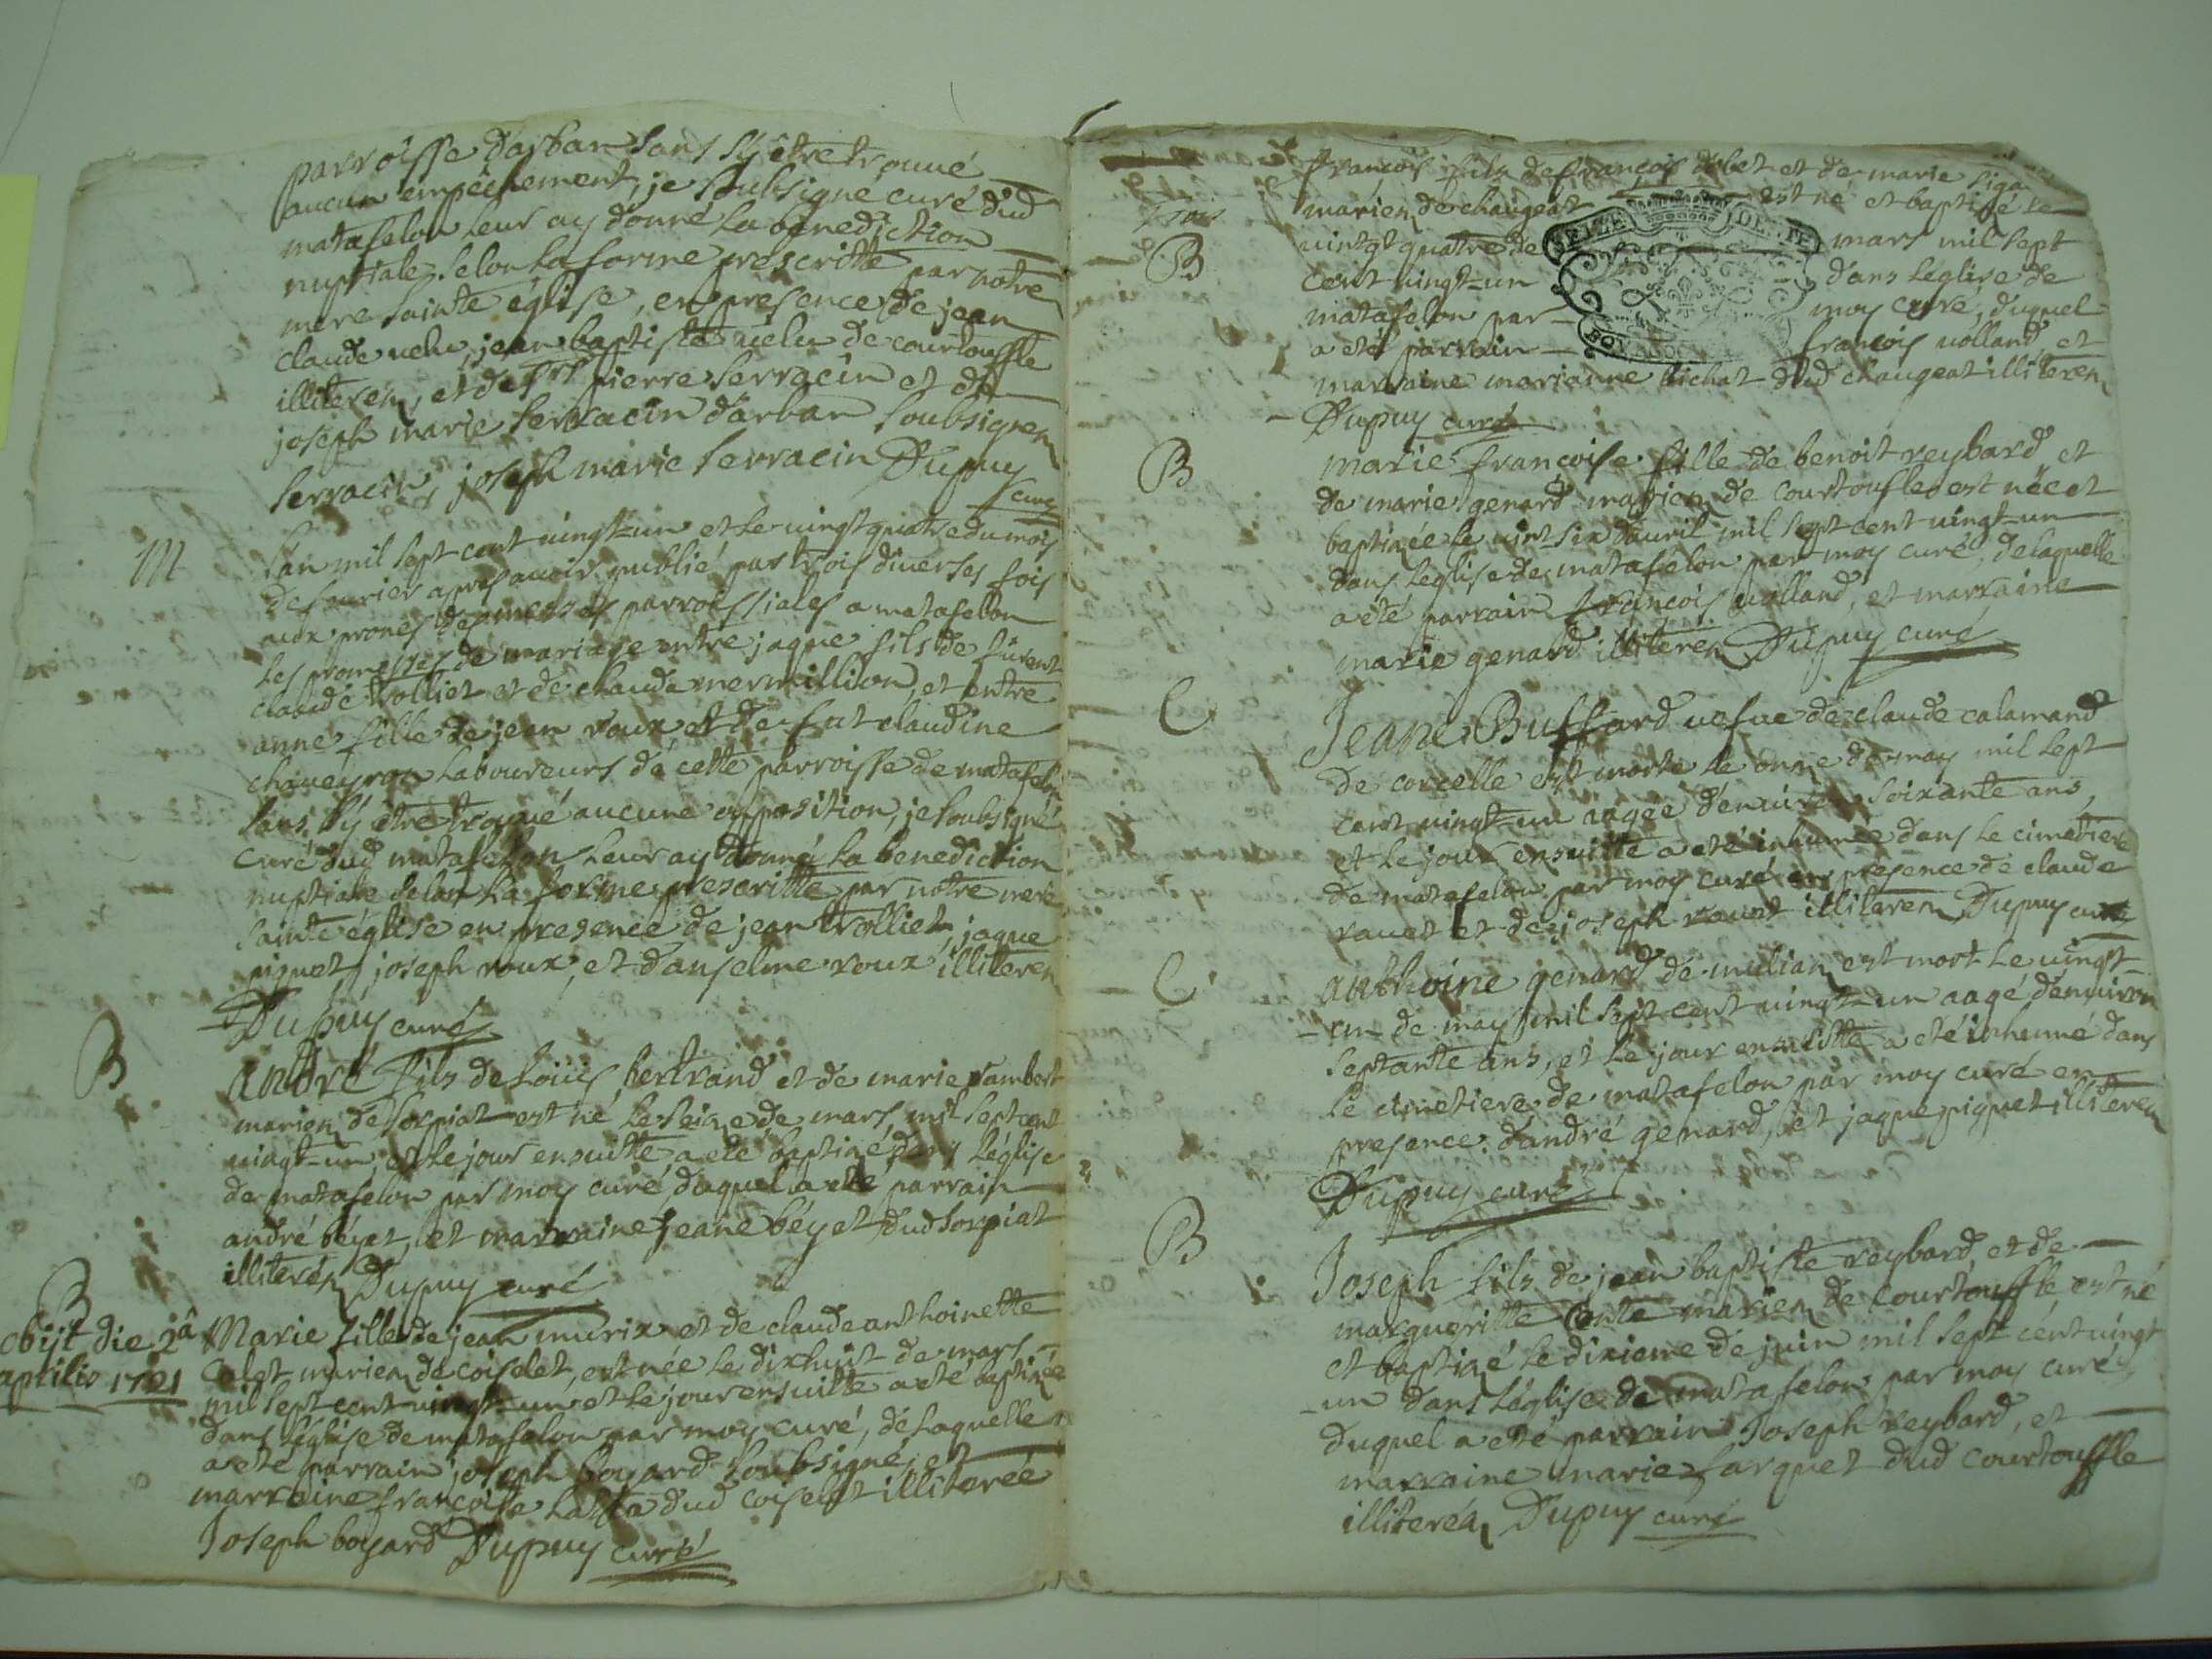 parroisse d'arban sans s'y être trouvé
aucun empêchement, je soubsigné curé dud
matafelon leur ay donné la benediction
nuptiale selon la forme prescritte par notre
mere sainte église, en presence de jean
claude uelu, jean baptiste uelu de courtouffle
illiteréz, et de srs pierre serracin et de
joseph marie serracin d'arban soubsignez
serracin joseph marie serracin Dupuy
curé
M
L'an mil sept cent uingt-un et le uingt quatre du mois
de feurier apres auoir publié par trois diuerses fois
aux prones des messes parroissiales a matafelon
les promesses de mariage entre jaque fils de furent
claude trolliet et de claude mermillion, et entre
anne fille de jean roux et de fut claudine
chaueyron laboureurs de cette parroisse de matafelon
sans s'y être trouué aucune opposition, je soubsigné
curé dud matafelon leur ay donné la benediction
nuptiale selon la forme prescritte par notre mere
sainte église en presence de jean trolliet, jaque
piquet, joseph roux, et d'anselme roux illiterez
Dupuy curé
B
André fils de loüis bertrand et de marie rambert
mariez de sorpiat est né le seize de mars mil sept cent
uingt-un, et le jour ensuitte a eté baptizé dans l'église
de matafelon par moy curé, duquel a eté parrain
andré béyet, et marraine jeane béyet dud sorpiat
illiteréz Dupuy curé
B
obijt die 2â
aprilis 1721
Marie fille de jean murix et de claude anthoinette
calet mariez de coiselet, est née le dixhuit de mars
mil sept cent uingt-un et le jour ensuitte a eté baptizée
dans l'église de matafelon par moy curé, de laquelle
a eté parrain joseph boyard soubsigné, et
marraine françoise dud coiselet illiterée
Joseph boyard Dupuy curé
françois fils de françois et de marie
mariez de changeat est né et baptizé le
uintgt quatre de mars mil sept
B
cent uingt-un dans l'église de
matafelon par moy curé, duquel
a eté parrain françois uolland, et
marraine marianne bichat dud changeat illiterez
Dupuy curé
B
marie françoise fille de benoit reybard et
de marie genard mariez de courtoufle est née et
baptizée le uint six d'auril mil sept cent uingt-un
dans l'église de matafelon par moy curé, de laquelle
a eté parrain françois uolland, et marraine
marie genard illiterez Dupuy curé
C
Jeane Buffard uefue de claude calamand
de corcelle est morte le onze de may mil sept
cent uingt-un aagée d'enuiron soixante ans,
et le jour ensuitte a eté inhumée dans le cimetiere
de matafelon par moy curé en presence de claude
rauet et de joseph rauet illiterez Dupuy curé
C
anthoine genard de mulian est mort le uingt-
-un de may mil sept cent uingt-un aagé d'enuiron
septante ans, et le jour ensuitte a eté inhumé dans
le cimetiere de matafelon par moy curé en
presence d'andré genard, et jaque piquet illiterez
Dupuy curé
B
Joseph fils de jean baptiste reybard, et de
margueritte mariez de courtouffle est né
et baptizé le dixieme de juin mil sept cent uingt
-un dans l'église de matafelon par moy curé
duquel a eté parrain Joseph reybard, et
marraine marie farquet dud courtouffle
illiteréz Dupuy curé